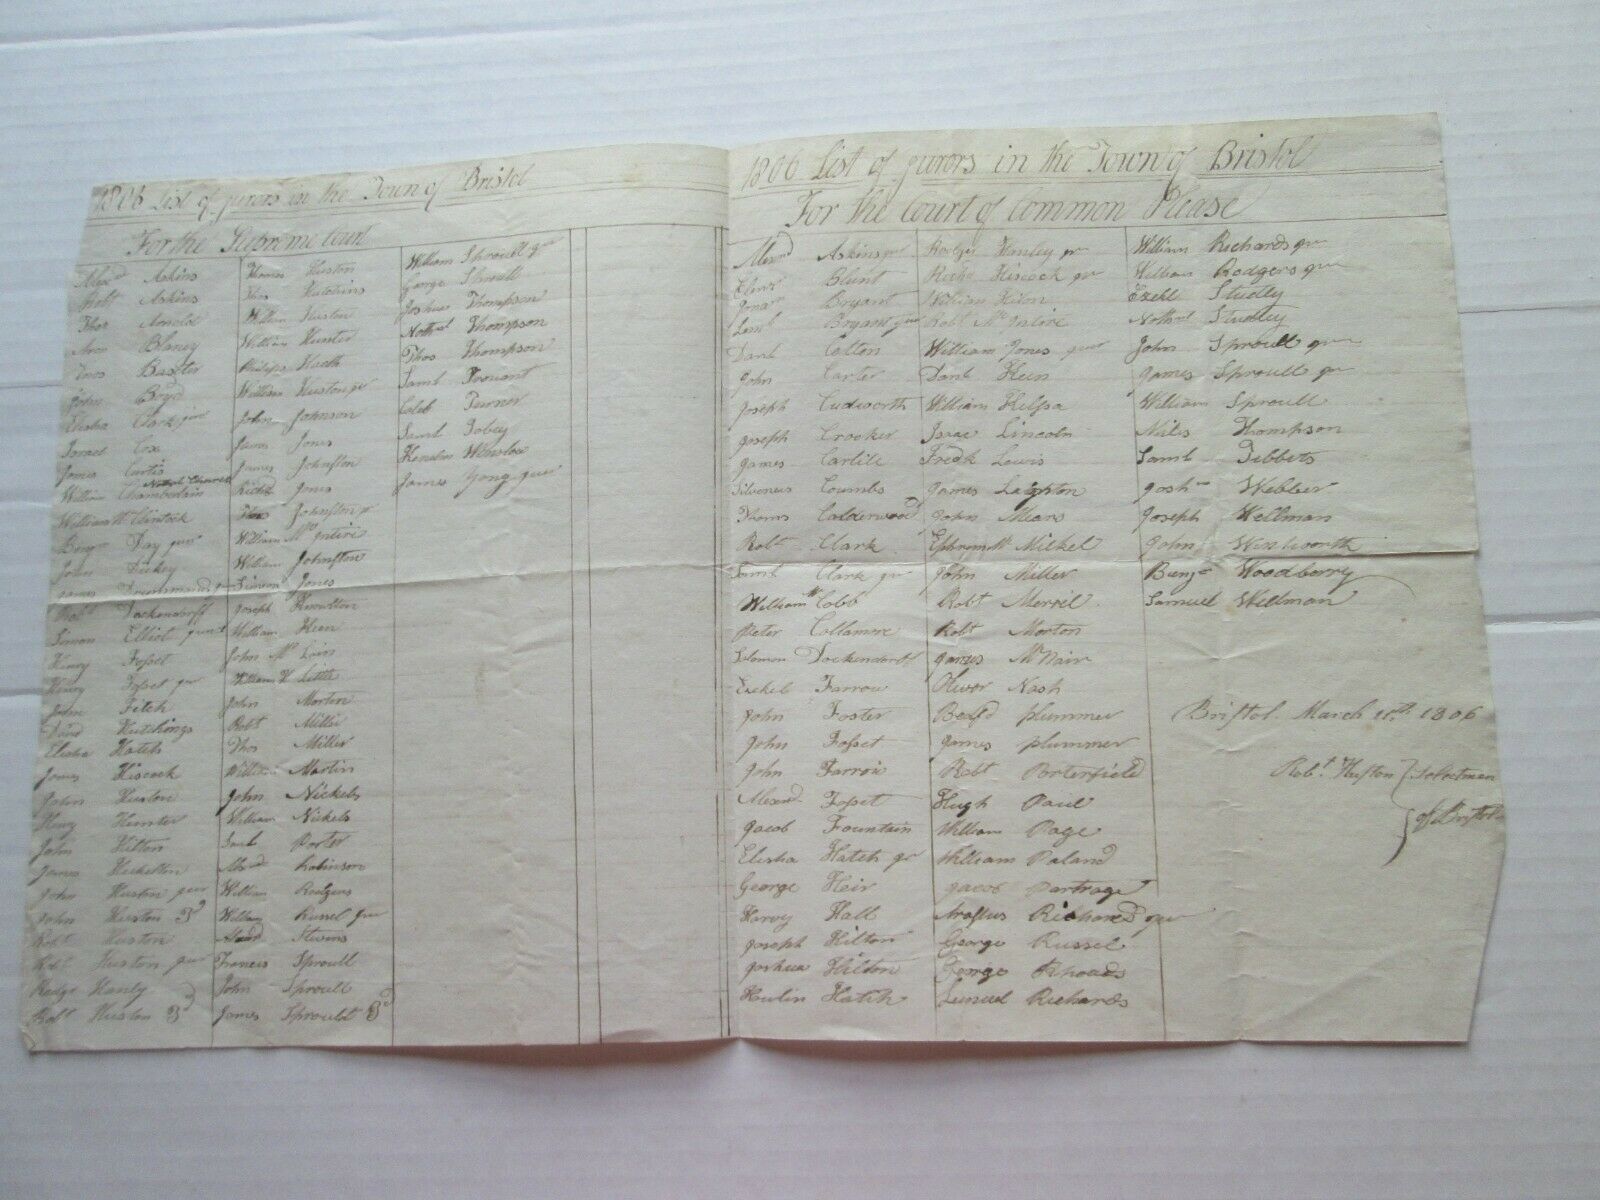 1806 List of jurors in the Town of Bristol
For the Supreme Court
Alexd Askins
Robt Askins
Thos Arnold
Blaney
Baxter
John Boyd
Elisha Clark junr
Israel Cox
James Curtis
William Chamberlain
Clintock
Day junr
John Dickey
James Drummond
Robt Dockendorff
Simon Elliot
Henry Fosset
Henry Fosset jur
John Fitch
David Hutchings
Elisha Hatch
James Hiscock
John Huston
Henry Hunter
John Hilton
James Hickelton
John Huston junr
John Huston 3d
Robt Huston
Robt Huston junr
Rodge Hanly
Robt Huston 3d
Thomas Huston
Thos Hutchins
William Huston
William Hunter
Philips Hatch
William Huston jur
John Johnson
James Jones
James Johnston
Richd Jones
Thos Johnston jr
William Mc Intire
William Johnston
Simeon Jones
Joseph
William Keen
John Mc Lain
William Little
John Morton
Robt Miller
Thos Miller
William Martin
John Nickels
William Nickels
Saml Porter
Alexd Robinson
William Rodgers
William Russel jur
Alexd Stevens
Francis Sproull
John Sproull
James Sproull 3d
William Sproull jur
George Sproull
Joshua Thompson
Nothnl Thompson
Thos Thompson
Saml Trouant
Caleb Turner
Saml Tobey
Kenelm Winslow
James Yong junr
1806 List of jurors in the Town of Bristol
For the Court of Common Please
Alexnd Askins jur
Ebenr Blunt
Jonan Bryant
Leml Bryant jur
Danl Cotton
John Carter
Joseph Cudworth
Joseph Crooker
James Carlile
Silvenus Coombs
Thoms Calderwood
Robt Clark
Saml Clark jur
William Cobb
Peter Collamore
Solomon Dockendorf
Ezekel Farrow
John Foster
John Fosset
John Farrow
Alexend Fosset
Jacob Fountain
Elisha Hatch jur
George Heir
Harvy Hall
Joseph Hilton
Joshua Hilton
Hatch
Rodger Hanley jr
Richd Hiscock jur
William Hilton
Robt Mc Intire
William Jones jur
Danl Keen
William Kelsa
Isaac Lincoln
Fredk Lewis
James
John Mears
Ephrem Mc Mickel
John Miller
Robt Merril
Robt Morton
James Mc Nair
Oliver Nash
plummer
James plummer
Robt Porterfield
Hugh Paul
William Page
William Poland
Jacob Partrage
Richard jur
George Russel
George Rhoads
Lemuel Richards
William Richards jur
William Rodgers jur
Ezekl Studly
Nothnl Studley
John Sproull jur
James Sproull jur
William Sproull
Niles Thompson
Saml Tebbets
Joshua Webber
Joseph Wellman
John Wentworth
Benja Woodberry
Samuel Wellman
Bristol March 1806
Robt Huston } Selectmen
of Bristol